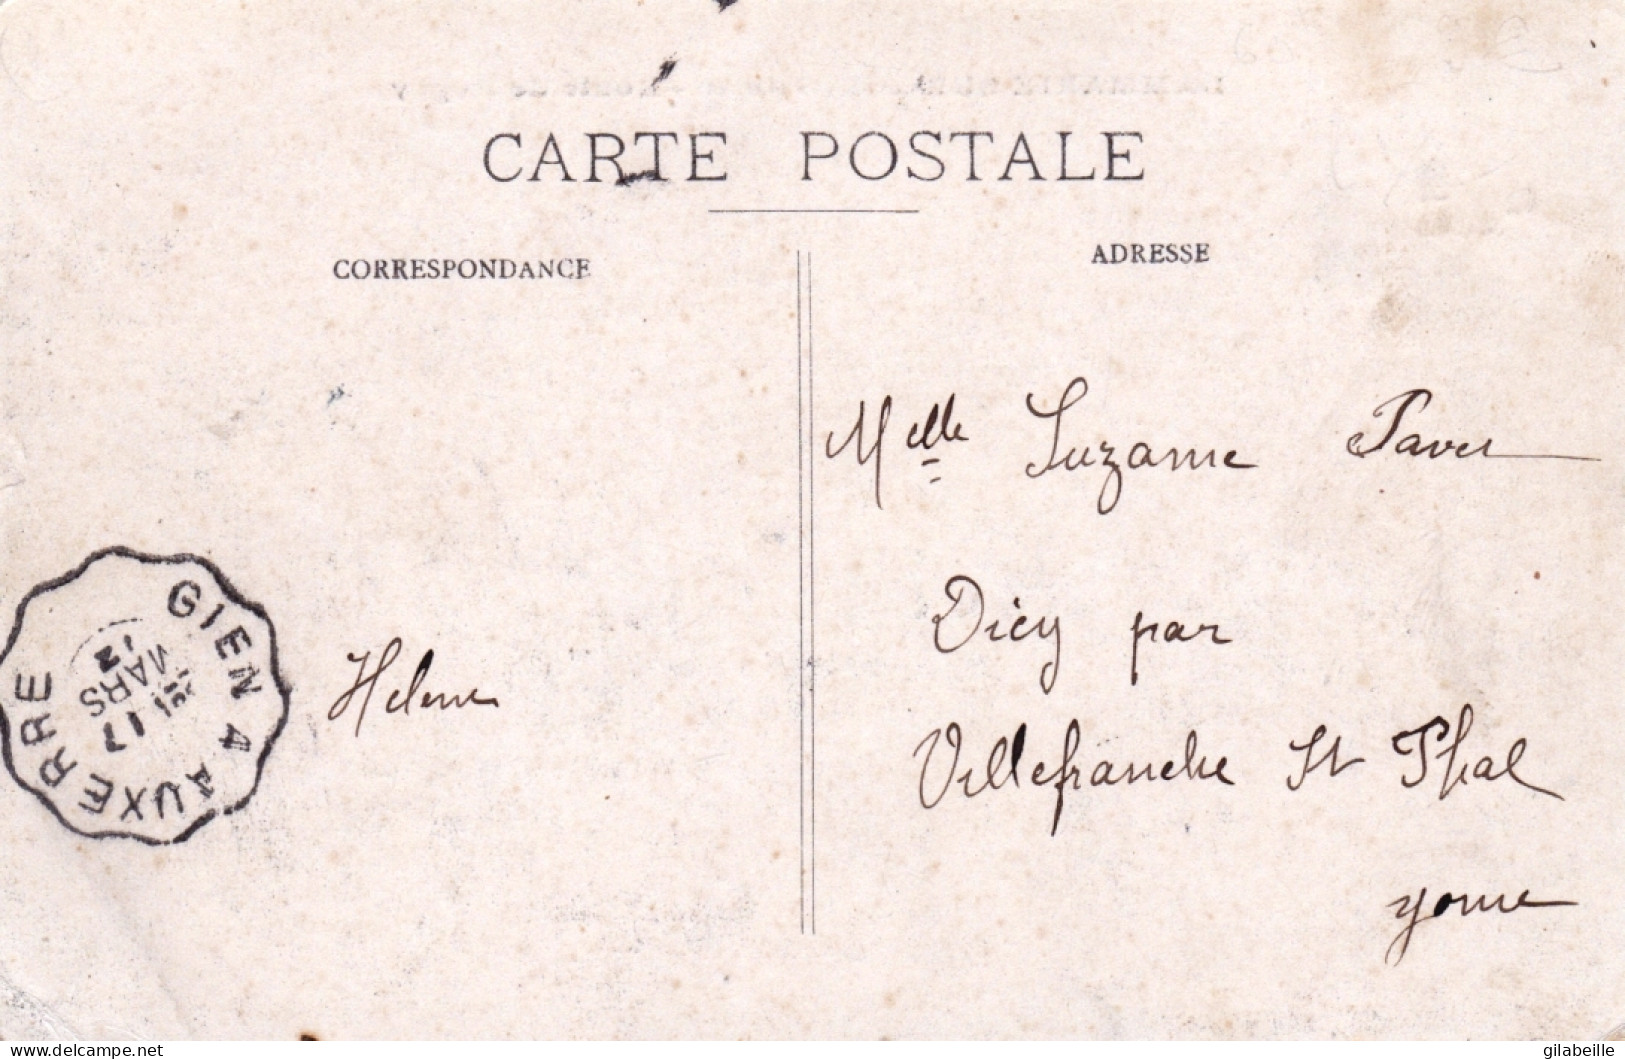 CARTE POSTALE
CORRESPONDANCE
ADRESSE
Melle Suzanne Paver
Dicy par
Villefranche St Phal
yonne
Helene
GIEN A AUXERRE
17
MARS
www.delcampe.net
gilabeille